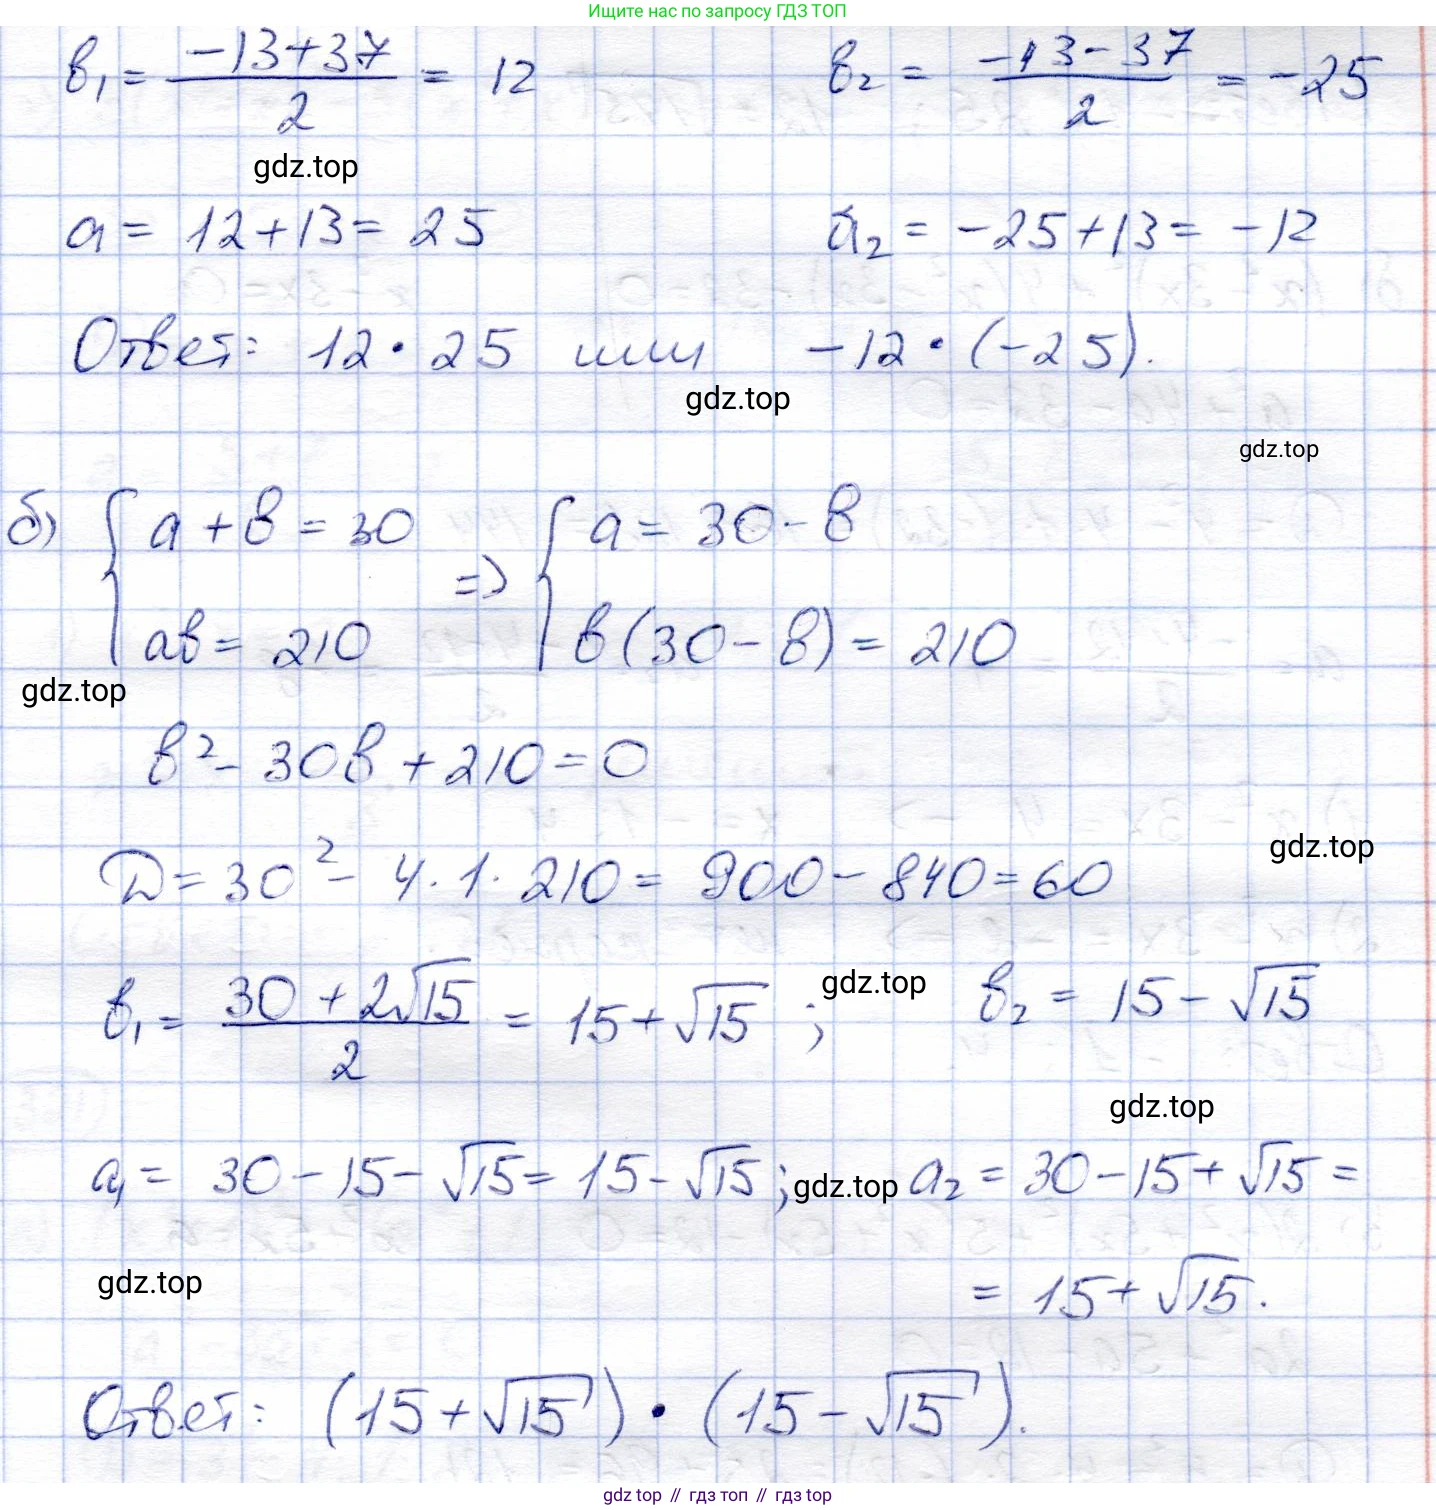 Ищите нас по запросу ГДЗ ТОП
в₁ = (-13+37)/2 = 12    в₂ = (-13-37)/2 = -25
gdz.top
a = 12+13 = 25    a₂ = -25+13 = -12
Ответ: 12 · 25 или -12 · (-25).
gdz.top
gdz.top
б) { a + в = 30    => { a = 30 - в
{ aв = 210    { в(30 - в) = 210
gdz.top
в² - 30в + 210 = 0
gdz.top
D = 30² - 4 · 1 · 210 = 900 - 840 = 60
gdz.top
в₁ = (30 + 2√15)/2 = 15 + √15 ;    в₂ = 15 - √15
gdz.top
a₁ = 30 - 15 - √15 = 15 - √15 ; gdz.top a₂ = 30 - 15 + √15 =
gdz.top
= 15 + √15.
Ответ: (15 + √15) · (15 - √15).
gdz top // гдз топ // гдз top